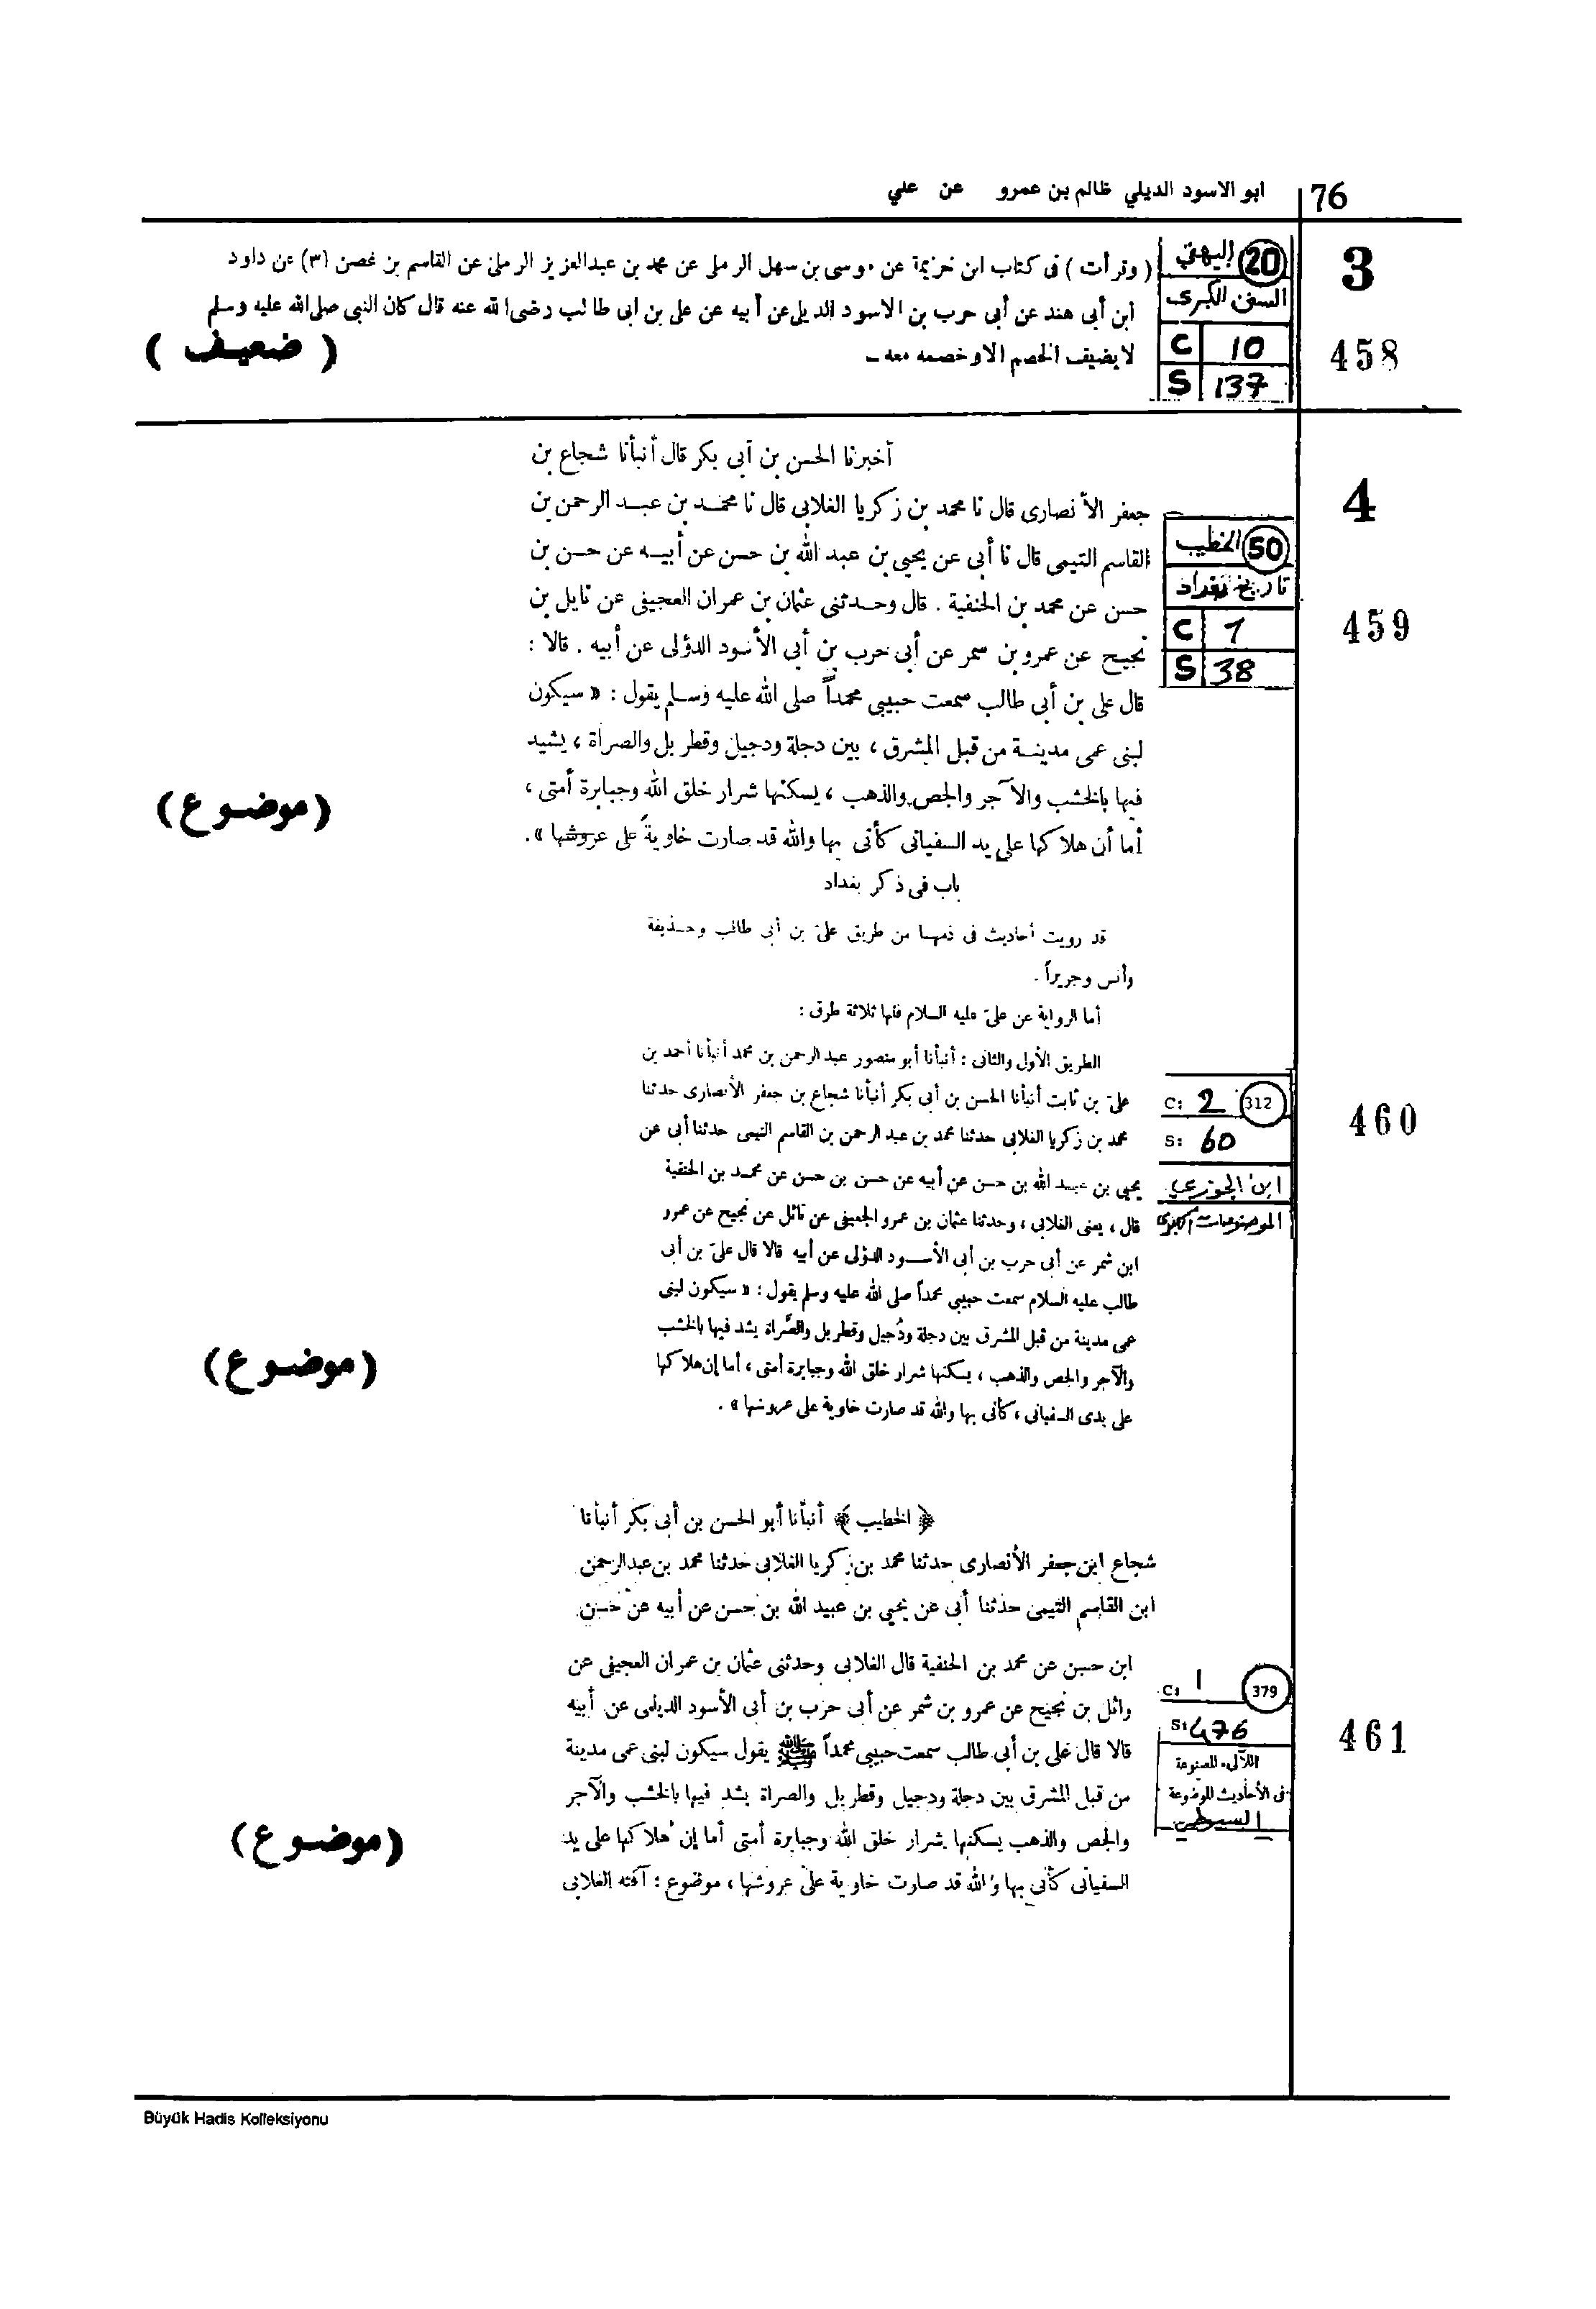 76 ابو الاسود الديلي ظالم بن عمرو عن علي
3
458
20 البيهقي
السنن الكبرى
C 10
S 137
( وقرأت ) فى كتاب ابن خزيمة عن موسى بن سهل الرملى عن محمد بن عبدالعزيز الرملى عن القاسم بن غصن (٣) عن داود
ابن أبى هند عن أبى حرب بن الاسود الديلى عن أبيه عن على بن ابى طالب رضى الله عنه قال كان النبى صلى الله عليه وسلم
لا يضيف الخصم الا وخصمه معه ـ
( ضعيف )
4
459
50 الخطيب
تاريخ بغداد
C 1
S 38
أخبرنا الحسن بن أبى بكر قال أنبأنا شجاع بن
جعفر الأنصارى قال نا محمد بن زكريا الغلابى قال نا محمد بن عبد الرحمن بن
القاسم التيمى قال نا أبى عن يحيى بن عبد الله بن حسن عن أبيه عن حسن بن
حسن عن محمد بن الحنفية . قال وحدثنى عثمان بن عمران العجيفى عن نايل بن
نجيح عن عمرو بن سمر عن أبى حرب بن أبى الأسود الدؤلى عن أبيه . قالا :
قال على بن أبى طالب سمعت حبيبى محمداً صلى الله عليه وسلم يقول : « سيكون
لبنى عمى مدينة من قبل المشرق ، بين دجلة ودجيل وقطربل والصراة ، يشيد
فيها بالخشب والآجر والجص والذهب ، يسكنها شرار خلق الله وجبابرة أمتى ،
أما أن هلاكها على يد السفيانى كأنى بها والله قد صارت خاوية على عروشها ».
(موضوع)
باب فى ذكر بغداد
قد رويت أحاديث فى ذمها من طريق علىّ بن أبى طالب وحذيفة
وأنس وجريراً .
أما الرواية عن علىّ عليه السلام فلها ثلاثة طرق :
460
312 C: 2
S: 60
ابن الجوزي
الموضوعات الكبرى
الطريق الأول والثانى : أنبأنا أبو منصور عبد الرحمن بن محمد أنبأنا أحمد بن
علىّ بن ثابت أنبأنا الحسن بن أبى بكر أنبأنا شجاع بن جعفر الأنصارى حدثنا
محمد بن زكريا الغلابى حدثنا محمد بن عبد الرحمن بن القاسم التيمى حدثنا أبى عن
يحيى بن عبيد الله بن حسن عن أبيه عن حسن بن حسن عن محمد بن الحنفية
قال ، يعنى الغلابى ، وحدثنا عثمان بن عمرو الجعينى عن نائل عن نجيح عن عمرو
ابن شمر عن أبى حرب بن أبى الأسود الدؤلى عن أبيه قالا قال علىّ بن أبى
طالب عليه السلام سمعت حبيبى محمداً صلى الله عليه وسلم يقول : « سيكون لبنى
عمى مدينة من قبل المشرق بين دجلة ودُجيل وقطربل والصَّراة يشد فيها بالخشب
والآجر والجص والذهب ، يسكنها شرار خلق الله وجبابرة أمتى ، أما إن هلاكها
على يدى السفيانى ، كأنى بها والله قد صارت خاوية على عروشها » .
(موضوع)
461
379 C: 1
S: 476
اللآلىء المصنوعة
فى الأحاديث الموضوعة
السيوطي
﴿ الخطيب ﴾ أنبأنا أبو الحسن بن أبى بكر أنبأنا
شجاع ابن جعفر الأنصارى حدثنا محمد بن زكريا الغلابى حدثنا محمد بن عبدالرحمن
ابن القاسم التيمى حدثنا أبى عن يحيى بن عبيد الله بن حسن عن أبيه عن حسن
ابن حسن عن محمد بن الحنفية قال الغلابى وحدثنى عثمان بن عمران العجيفى عن
وائل بن نجيح عن عمرو بن شمر عن أبى حرب بن أبى الأسود الديلى عن أبيه
قالا قال على بن أبى طالب سمعت حبيبى محمداً ﷺ يقول سيكون لبنى عمى مدينة
من قبل المشرق بين دجلة ودجيل وقطربل والصراة يشد فيها بالخشب والآجر
والجص والذهب يسكنها شرار خلق الله وجبابرة أمتى أما إن هلاكها على يد
السفيانى كأنى بها والله قد صارت خاوية على عروشها ، موضوع : آفته الغلابى
(موضوع)
Büyük Hadis Kolleksiyonu